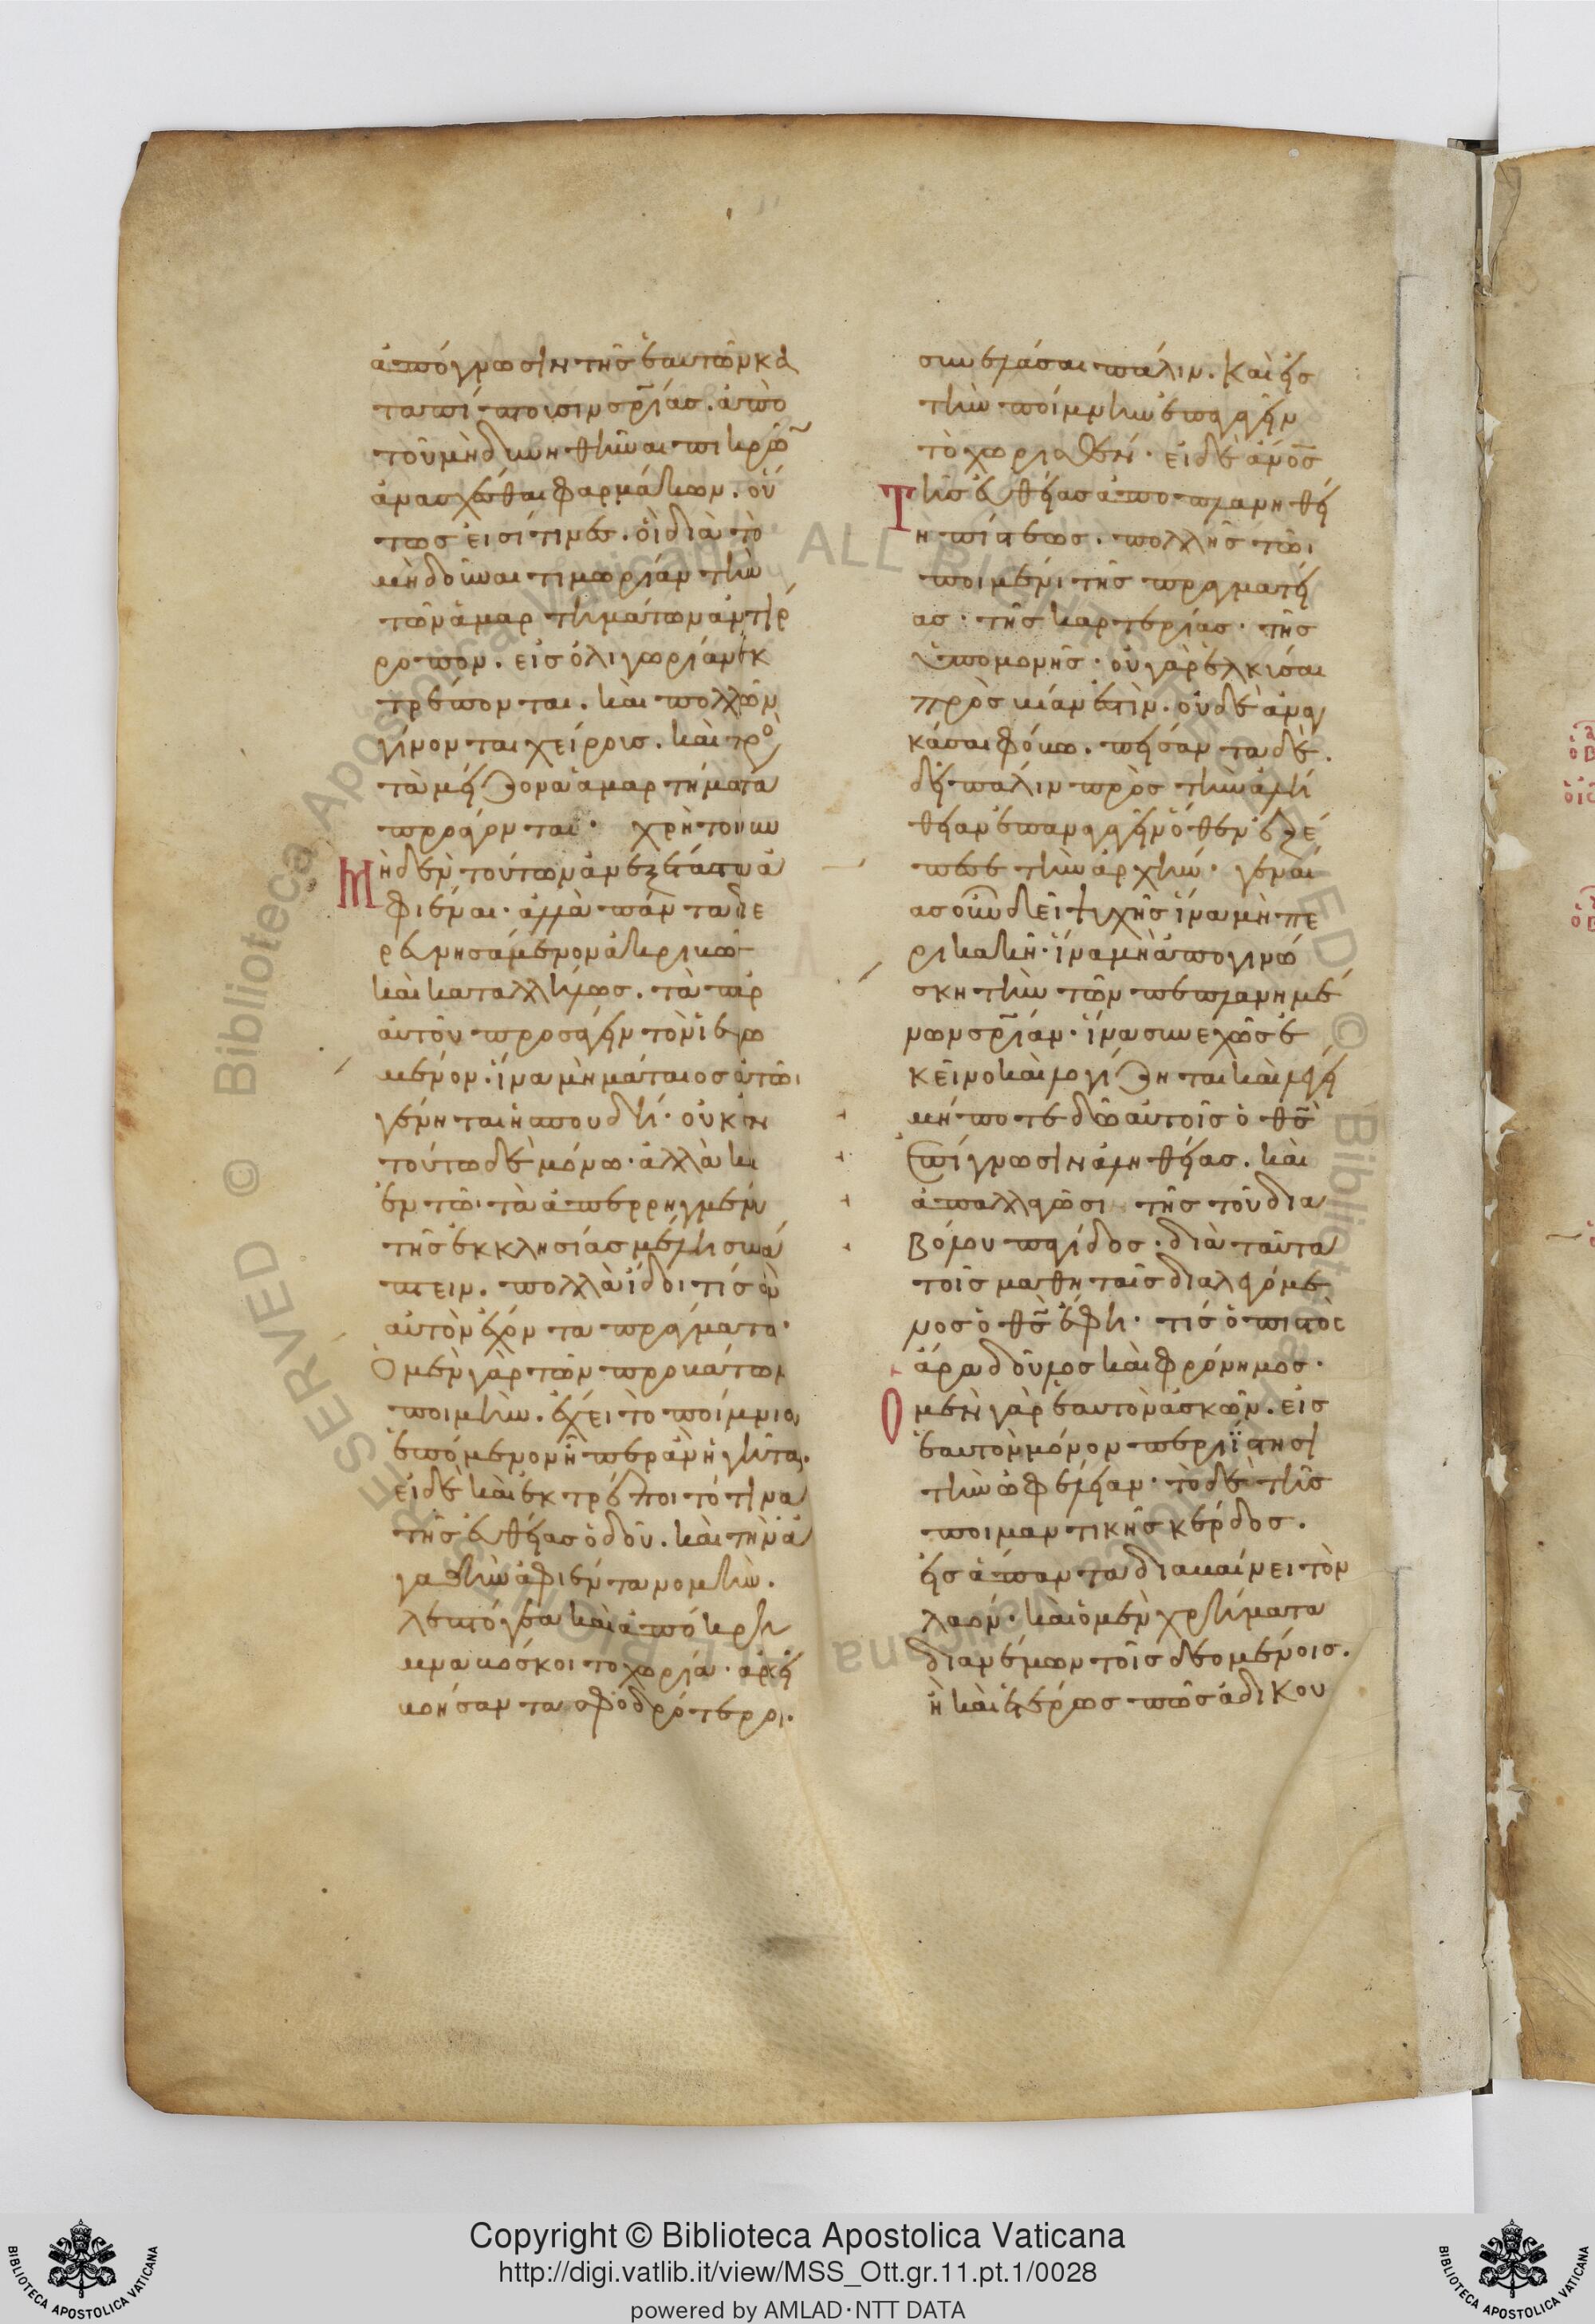 ἀπόγνωσιν τῆς ἑαυτῶν κα
ταπίπτουσιν σρίας. ἀπὸ
τοῦ μὴ δυνηθῆναι πικρῶν
ἀνασχέσθαι φαρμάκων. οὕ
τως εἰσί τινες. οἱ διὰ τὸ
μὴ δοῦναι τιμωρίαν τὴν
τῶν ἁμαρτημάτων ἀντίρ
ροπον. εἰς ὀλιγωρίαν ἐκ
τρέπονται. καὶ πολλῶν
γίνονται χείρους. καὶ πρὸς
τὰ μείζονα ἁμαρτήματα
προάγονται. χρὴ τοίνυν
μηδὲν τούτων ἀνεξέταστον ἀ
φιέναι. ἀλλὰ πάντα διε
ρευνησάμενον ἀκριβῶς
καὶ καταλλήλως. τὰ παρ
αὐτοῦ προσάγειν τὸν ἱερω
μένον. ἵνα μὴ μάταιος αὐτῶι
γένηται ἡ σπουδή. οὐκ ἐν
τούτω δὲ μόνω. ἀλλὰ καὶ
ἐν τῶι τὰ ἀπερρηγμένα
τῆς ἐκκλησίας μέλη συνά
πτειν. πολλὰ ἴδοι τίς ἂν
αὐτὸν ἔχοντα πράγματα.
Ὁ μὲν γὰρ τῶν προβάτων
ποιμὴν. ἔχει τὸ ποίμνιον
ἑπόμενον ἧπερ ἂν ἡγῆται.
εἰ δὲ καὶ ἐκτρέποιτό τινα
τῆς εὐθείας ὁδοῦ. καὶ τὴν ἀ
γαθὴν ἀφιέντα νομὴν.
λεπτόγεα καὶ ἀπόκρη
μνα βόσκοιτο χωρία. ἀρκεῖ
βοήσαντα σφοδρότερον.
συνελάσαι πάλιν. καὶ εἰς
τὴν ποίμνην ἐπαγαγεῖν
τὸ χωρισθέν. εἰ δὲ ἀνος
τῆς εὐθείας ἀποπλανηθεί
η πίστεως. πολλῆς τῶι
ποιμένι τῆς πραγματεί
ας. τῆς καρτερίας. τῆς
ὑπομονῆς. οὐ γὰρ ἑλκύσαι
πρὸς βίαν ἐστὶν. οὐδὲ ἀναγ
κάσαι φόβω. πείσαντα δὲ.
δεῖ πάλιν πρὸς τὴν ἀλή
θειαν ἐπαναγαγεῖν ὅθεν ἐξέ
πεσε τὴν ἀρχήν. γενναί
ας οὖν δεῖ ψυχῆς ἵνα μὴ πε
ρικακῆ. ἵνα μὴ ἀπογινώ
σκη τὴν τῶν πεπλανημέ
νων σρίαν. ἵνα συνεχῶς ἐ
κεῖνο καὶ λογίζηται καὶ λέγη
μή ποτε δῶ αὐτοῖς ὁ θς
ἐπίγνωσιν ἀληθείας. καὶ
ἀπαλλαγῶσι τῆς τοῦ δια
βόλου παγίδος. διὰ ταῦτα
τοῖς μαθηταῖς διαλεγόμε
νος ὁ θς ἔφη. τίς ὁ πιστὸς
ἄρα δοῦλος καὶ φρόνιμος.
Ο μὲν γὰρ ἑαυτὸν ἀσκῶν. εἰς
ἑαυτὸν μόνον περιΐστησι
τὴν ὠφέλειαν. τὸ δὲ τῆς
ποιμαντικῆς κέρδος.
εἰς ἅπαντα διαβαίνει τὸν
λαόν. καὶ ὁ μὲν χρήματα
διανέμων τοῖς δεομένοις.
ἢ καὶ ἑτέρως πῶς ἀδικου
Copyright © Biblioteca Apostolica Vaticana
http://digi.vatlib.it/view/MSS_Ott.gr.11.pt.1/0028
powered by AMLAD·NTT DATA
BIBLIOTECA APOSTOLICA VATICANA
BIBLIOTECA APOSTOLICA VATICANA